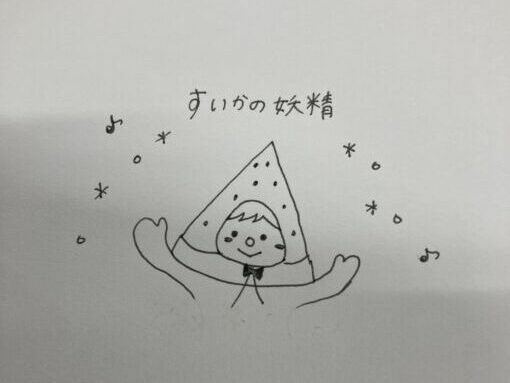 すいかの妖精